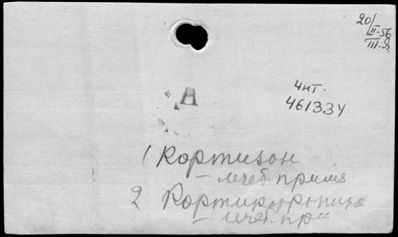 20/
III-56
III.9.
А
4нт.
461334
1 Кортизон
— лечеб. прим
2 Кортикотропин
— лечеб. пр